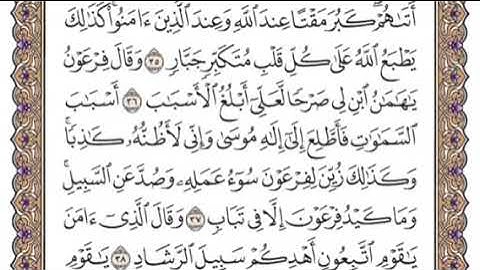 أَتَىٰهُمْۖ كَبُرَ مَقْتًا عِندَ ٱللَّهِ وَعِندَ ٱلَّذِينَ ءَامَنُوا۟ۚ كَذَٰلِكَ
يَطْبَعُ ٱللَّهُ عَلَىٰ كُلِّ قَلْبِ مُتَكَبِّرٍ جَبَّارٍ ٣٥ وَقَالَ فِرْعَوْنُ
يَٰهَٰمَٰنُ ٱبْنِ لِى صَرْحًا لَّعَلِّىٓ أَبْلُغُ ٱلْأَسْبَٰبَ ٣٦ أَسْبَٰبَ
ٱلسَّمَٰوَٰتِ فَأَطَّلِعَ إِلَىٰٓ إِلَٰهِ مُوسَىٰ وَإِنِّى لَأَظُنُّهُۥ كَٰذِبًاۚ
وَكَذَٰلِكَ زُيِّنَ لِفِرْعَوْنَ سُوٓءُ عَمَلِهِۦ وَصُدَّ عَنِ ٱلسَّبِيلِۚ
وَمَا كَيْدُ فِرْعَوْنَ إِلَّا فِى تَبَابٍ ٣٧ وَقَالَ ٱلَّذِىٓ ءَامَنَ
يَٰقَوْمِ ٱتَّبِعُونِ أَهْدِكُمْ سَبِيلَ ٱلرَّشَادِ ٣٨ يَٰقَوْمِ